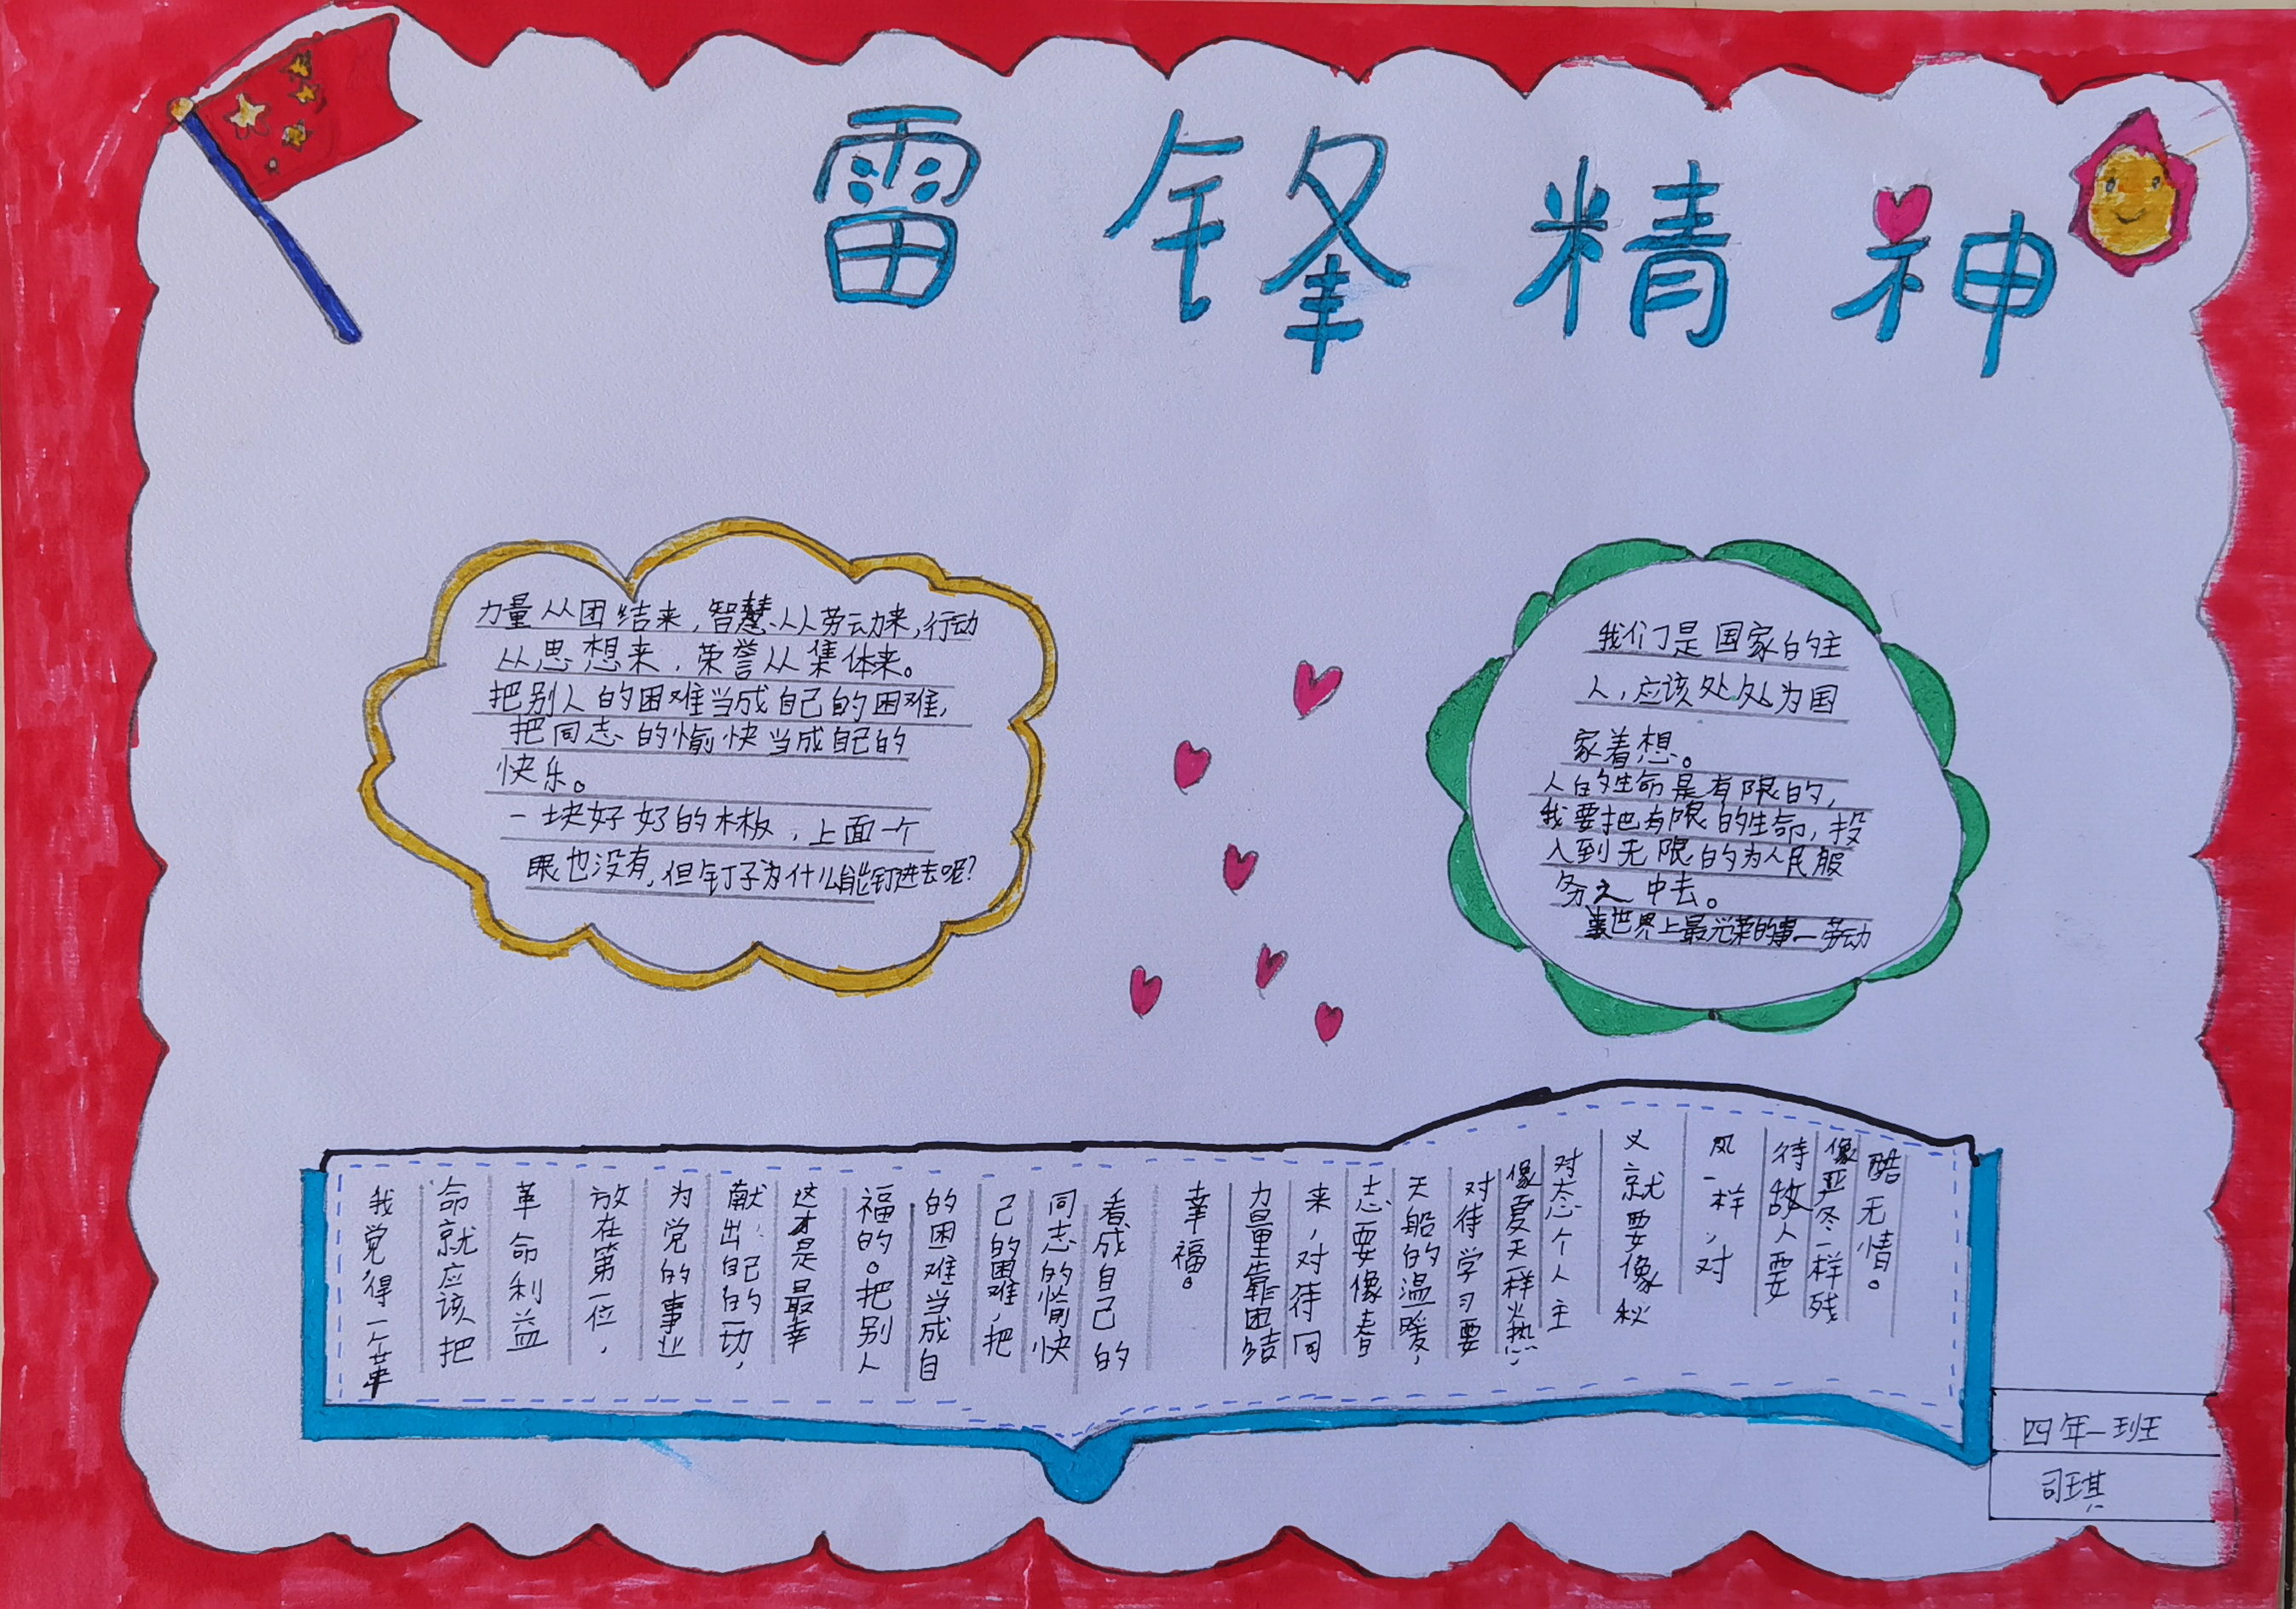 雷锋精神
力量从团结来，智慧从劳动来，行动
从思想来，荣誉从集体来。
把别人的困难当成自己的困难，
把同志的愉快当成自己的
快乐。
一块好好的木板，上面一个
眼也没有，但钉子为什么能钉进去呢？
我们是国家的主
人，应该处处为国
家着想。
人的生命是有限的，
我要把有限的生命，投
入到无限的为人民服
务之中去。
世界上最光荣的事一劳动
我觉得一个革
命就应该把
革命利益
放在第一位，
为党的事业
献出自己的一切，
这才是最幸
福的。把别人
的困难当成自
己的困难，把
同志的愉快
看成自己的
幸福。
力量靠团结
来，对待同
志要像春
天船的温暖，
对待学习要
像夏天一样火热，
对态个人主
义就要像秋
风一样，对
待敌人要
像严冬一样残
酷无情。
四年一班
司琪